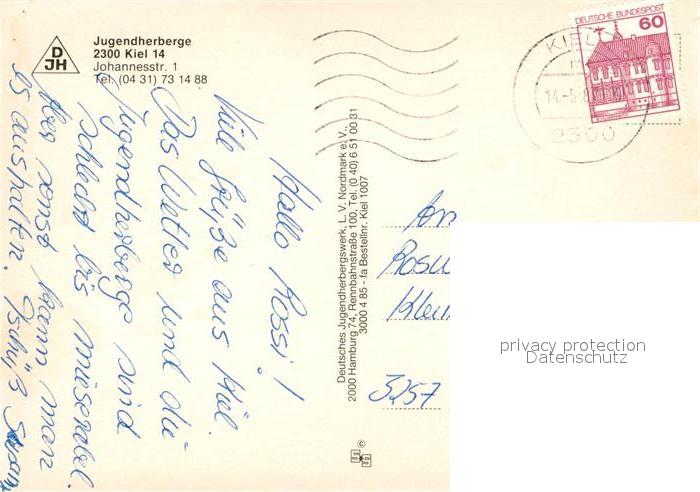 D
JH
Jugendherberge
2300 Kiel 14
Johannesstr. 1
Tel. (04 31) 73 14 88
Hallo Rossi!
Viele Grüße aus Kiel.
Das Wetter und die
Jugendherberge sind
schlecht bis miserabel.
Aber sonst kann man
es aushalten. Tschüß Susann
Deutsches Jugendherbergswerk, L. V. Nordmark e. V.,
2000 Hamburg 74, Rennbahnstraße 100, Tel. (0 40) 6 51 00 31
3000 4 85 - fa Bestellnr. Kiel 1007
DEUTSCHE BUNDESPOST
60
KIEL
14.-5.8
2300
3257
©
privacy protection
Datenschutz